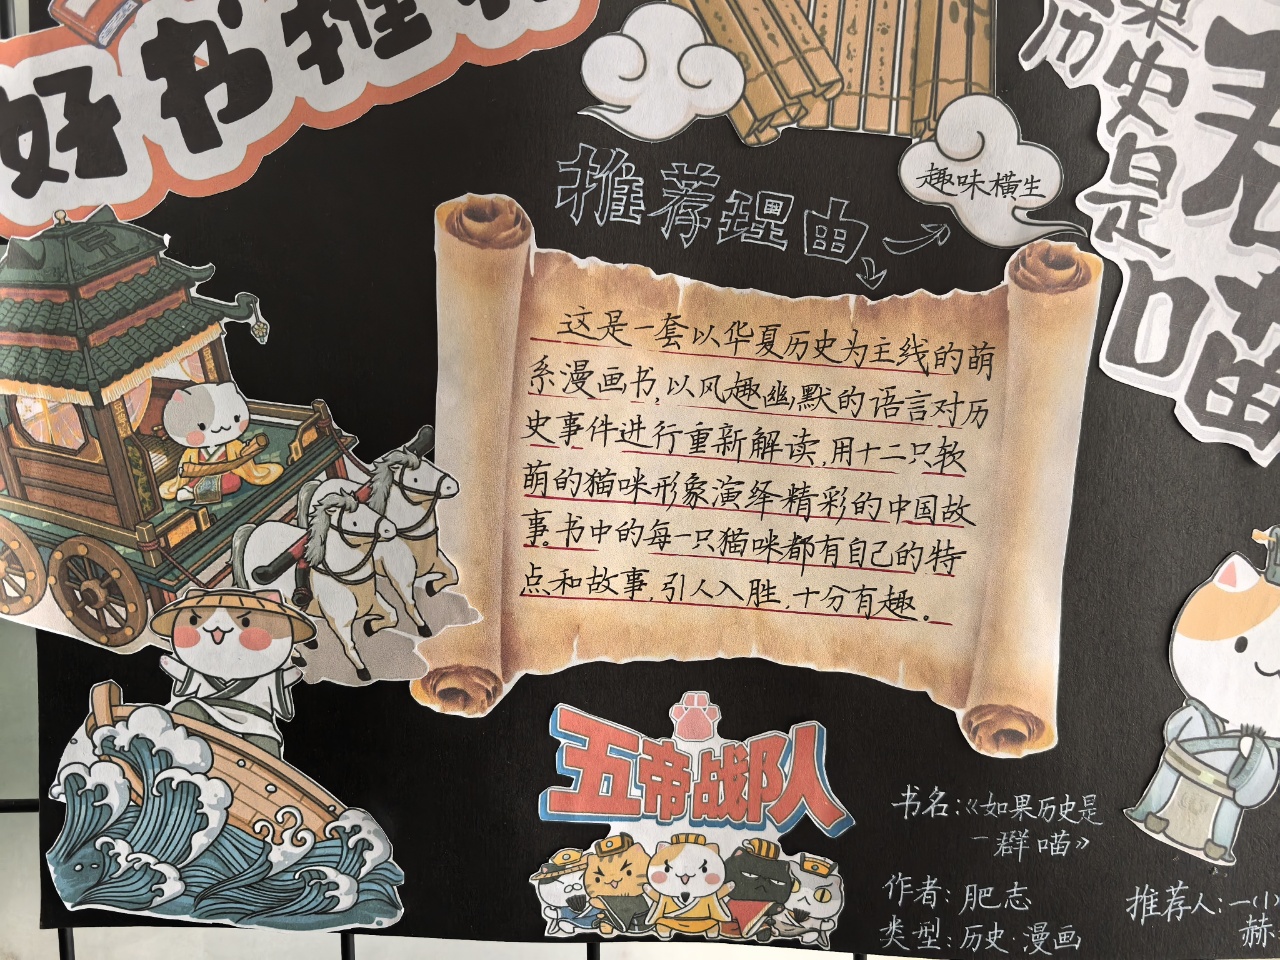 好书推
如果历史是
喵
趣味横生
推荐理由
这是一套以华夏历史为主线的萌
系漫画书,以风趣幽默的语言对历
史事件进行重新解读,用十二只软
萌的猫咪形象演绎精彩的中国故
事。书中的每一只猫咪都有自己的特
点和故事,引人入胜,十分有趣。
五帝战队
书名:《如果历史是
一群喵》
作者:肥志
类型:历史·漫画
推荐人:一(1)
赫